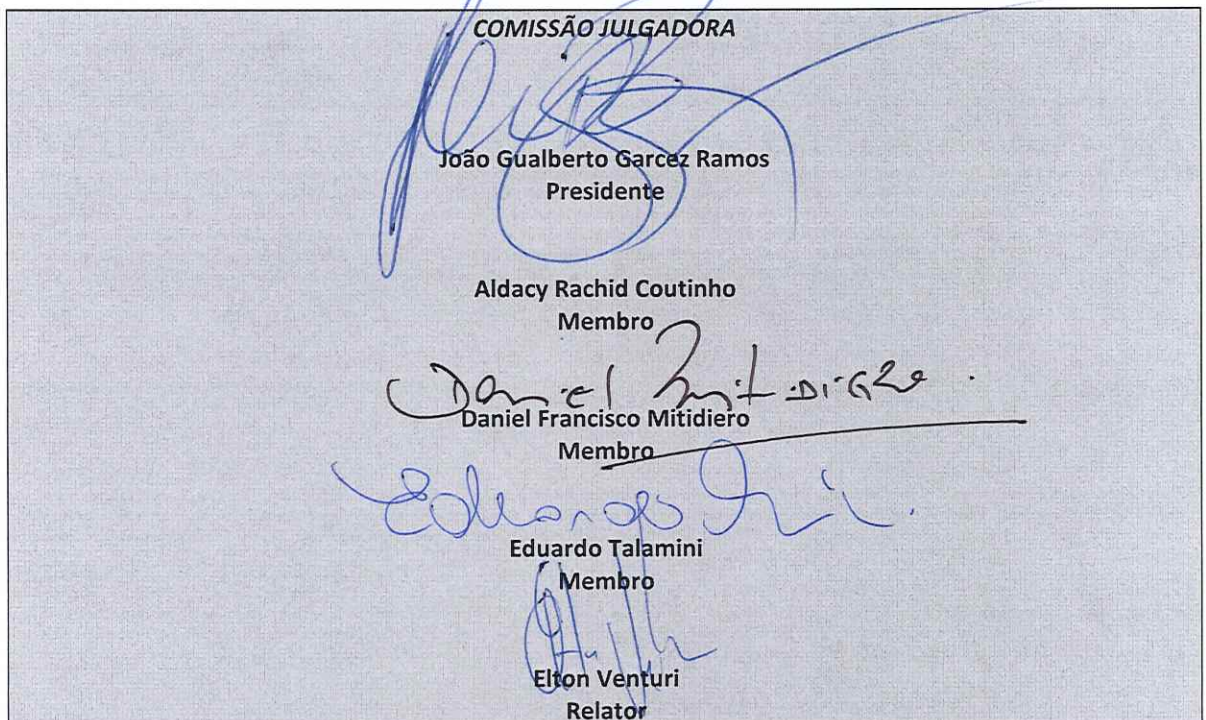 COMISSÃO JULGADORA
João Gualberto Garcez Ramos
Presidente
Aldacy Rachid Coutinho
Membro
Daniel Mitidiero.
Daniel Francisco Mitidiero
Membro
Eduardo
Eduardo Talamini
Membro
Elton Venturi
Relator